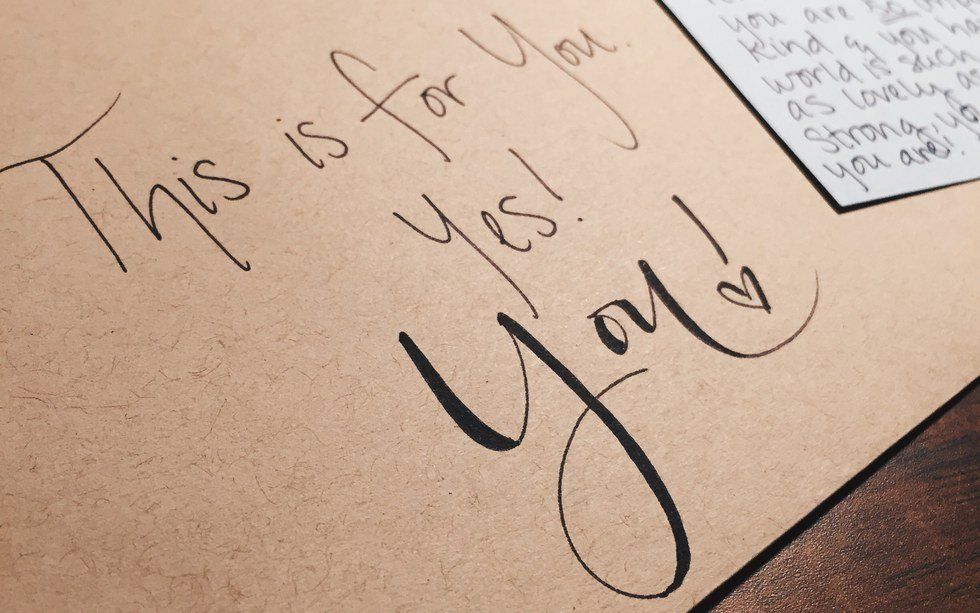 This is for You.
Yes!
You!
you are so
Kind
you ha
world is such
as lovely a
Strong, yo
you are!